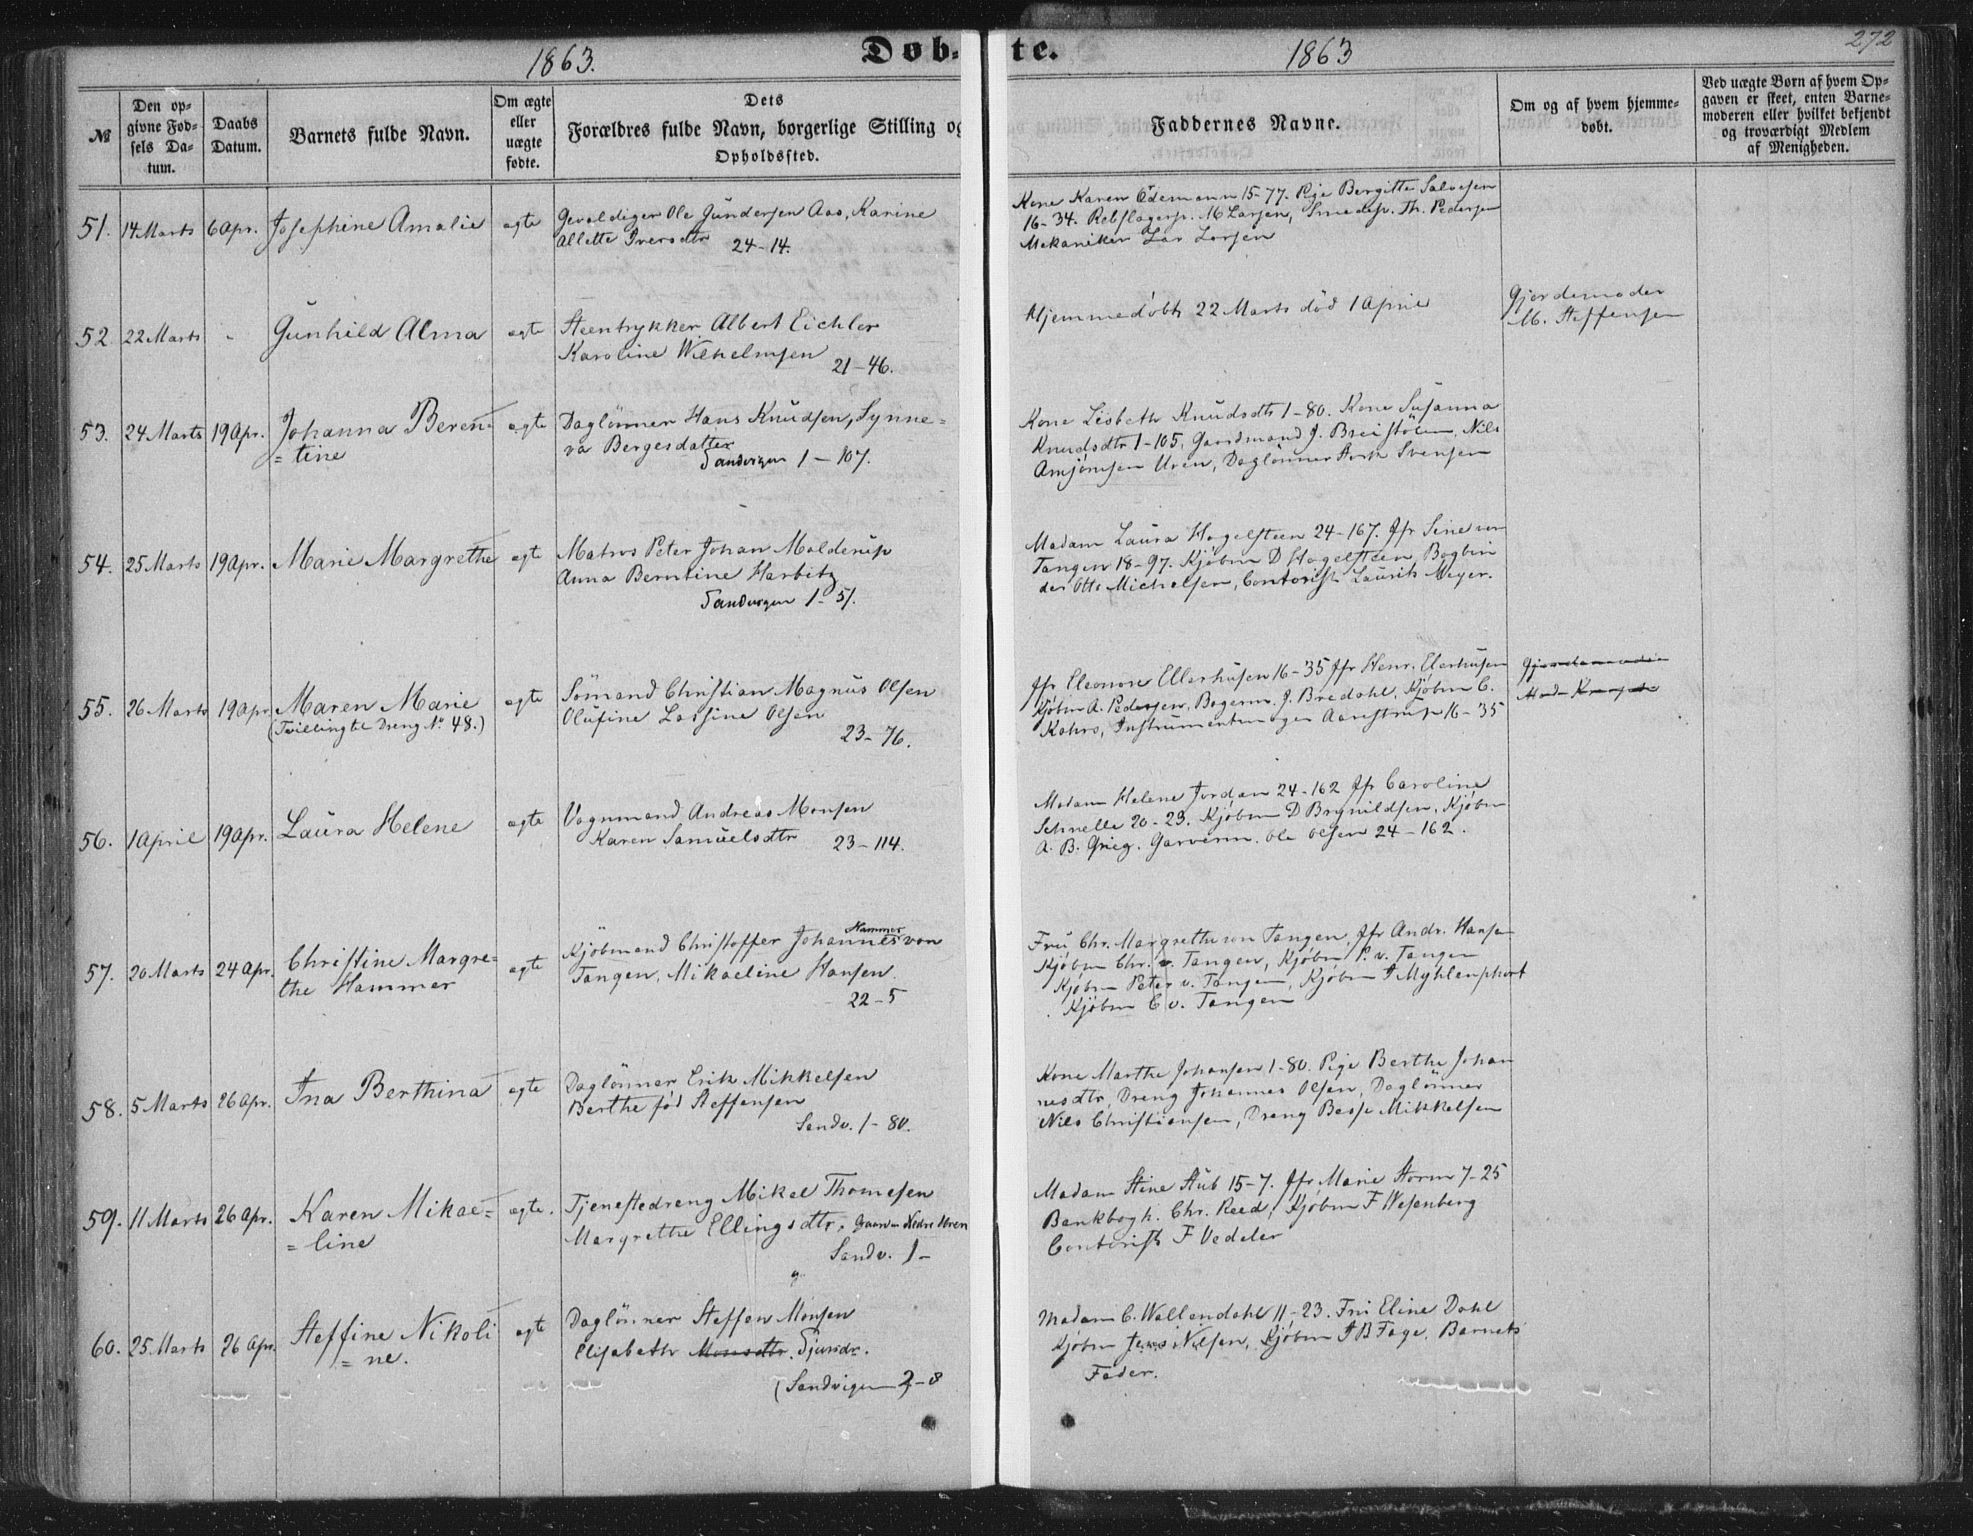 1863.
Døb-
te.
1863
272
№
Den op-
givne Fød-
sels Da-
tum.
Daabs
Datum.
Barnets fulde Navn.
Om ægte
eller
uægte
fødte.
Dets
Forældres fulde Navn, borgerlige Stilling og
Opholdssted.
Faddernes Navne.
Om og af hvem hjemme-
døbt.
Ved uægte Børn af hvem Op-
gaven er skeet, enten Barne-
moderen eller hvilket bekjendt
og troværdigt Medlem
af Menigheden.
51. 14 Marts 6 Apr. Josephine Amalie egte
Gevaldiger Ole Gundersen Aas, Karine
Allette Iversdtr 24-14.
Kone Karen Ödemann 15-77. Pige Bergitte Salvesen
16-34. Rebslagersv. M Larsen, Smedesv. Th. Pedersen
Mekaniker Lar Larsen
52. 22 Marts - Gunhild Alma egte
Steentrykker Albert Eichler
Karoline Wilhelmsen
21-46.
Hjemmedöbt 22 Marts död 1 April
Gjordemoder
M. Steffensen
53. 24 Marts 19 Apr. Johanna Beren-
=tine
egte
Daglönner Hans Knudsen, Synne=
va Bergesdatter
Sandvigen 1-107.
Kone Lisbeth Knudsdtr 1-80. Kone Susanna
Knudsdtr 1-105, Gaardmand J. Breistölen, Nils
Amjörnsen Uren, Daglönner Svensen
54. 25 Marts 19 Apr. Marie Margrethe egte
Matros Peter Johan Molderup
Anna Berntine Harbitz
Sandvigen 1-51.
Madam Laura Hagelsteen 24-167. Jfr Sine von
Tangen 18-97. Kjøbm D Hagelsteen, Bogbin
der Otto Michelsen, Contorist Laurits Meyer.
55. 26 Marts 19 Apr Maren Marie
(Tvilling til Dreng No 48.)
egte
Sömand Christian Magnus Olsen
Olufine Lassine Olsen
23-76.
Jfr Eleonore Ellerhusen 16-35 Jfr Henr. Elerhusen
Kjöbm A. Pedersen, Bogerm. J. Bredahl, Kjöbm C.
Kahrs, Instrumentmager Aarestrup 16-35
Gjordemoder
56. 1 April 19 Apr. Laura Helene egte
Vognmand Andreas Monsen
Karen Samuelsdtr 23-114.
Madam Helene Jordan 24-162 Jfr Caroline
Schnelle 20-23. Kjøbm D Brynildsen, Kjøbm
A. B. Grieg. Garverm. Ole Olsen 24-162.
57. 20 Marts 24 Apr. Christine Margre=
the Hammer
egte
Hammer
Kjöbmand Christoffer Johannes von
Tangen, Mikaeline Hansen
22-5
Fru Chr. Margrethe von Tangen, Jfr Andr. Hansen
Kjøbm Chr. v. Tangen, Kjøbm P. v. Tangen
Kjøbm Peter v. Tangen, Kjøbm J Myhlenphort
Kjöbm C v. Tangen
58. 5 Marts 26 Apr. Ina Berthina egte
Daglönner Erik Mikkelsen
Berthe fød Steffensen
Sandv. 1-80.
Kone Marthe Johansen 1-80. Pige Berthe Johan
nesdtr, Dreng Johannes Olsen, Daglönner
Nils Christiansen, Dreng Mikkelsen
59. 11 Marts 26 Apr. Karen Mikae=
=line
egte.
Tjenestedreng Mikel Thomesen
Margrethe Ellingsdtr. Gaarden Nedre Uren
Sandv. 1-
Madam Stine Stub 15-7. Jfr Marie Storm 7-25
Bankbogh. Chr. Reed, Kjøbm F Wesenberg
Contorist F Vedeler
60. 25 Marts 26 Apr. Steffine Nikoli
=ne.
egte
Daglönner Steffen Monsen
Elisabeth Monsdtr. Sjursdr.
(Sandvigen 2-8
Madam C. Wallendahl 11-23. Fru Eline Dahl
Kjøbm Jens Nilsen, Kjøbm J B Faye, Barnets
Fader.